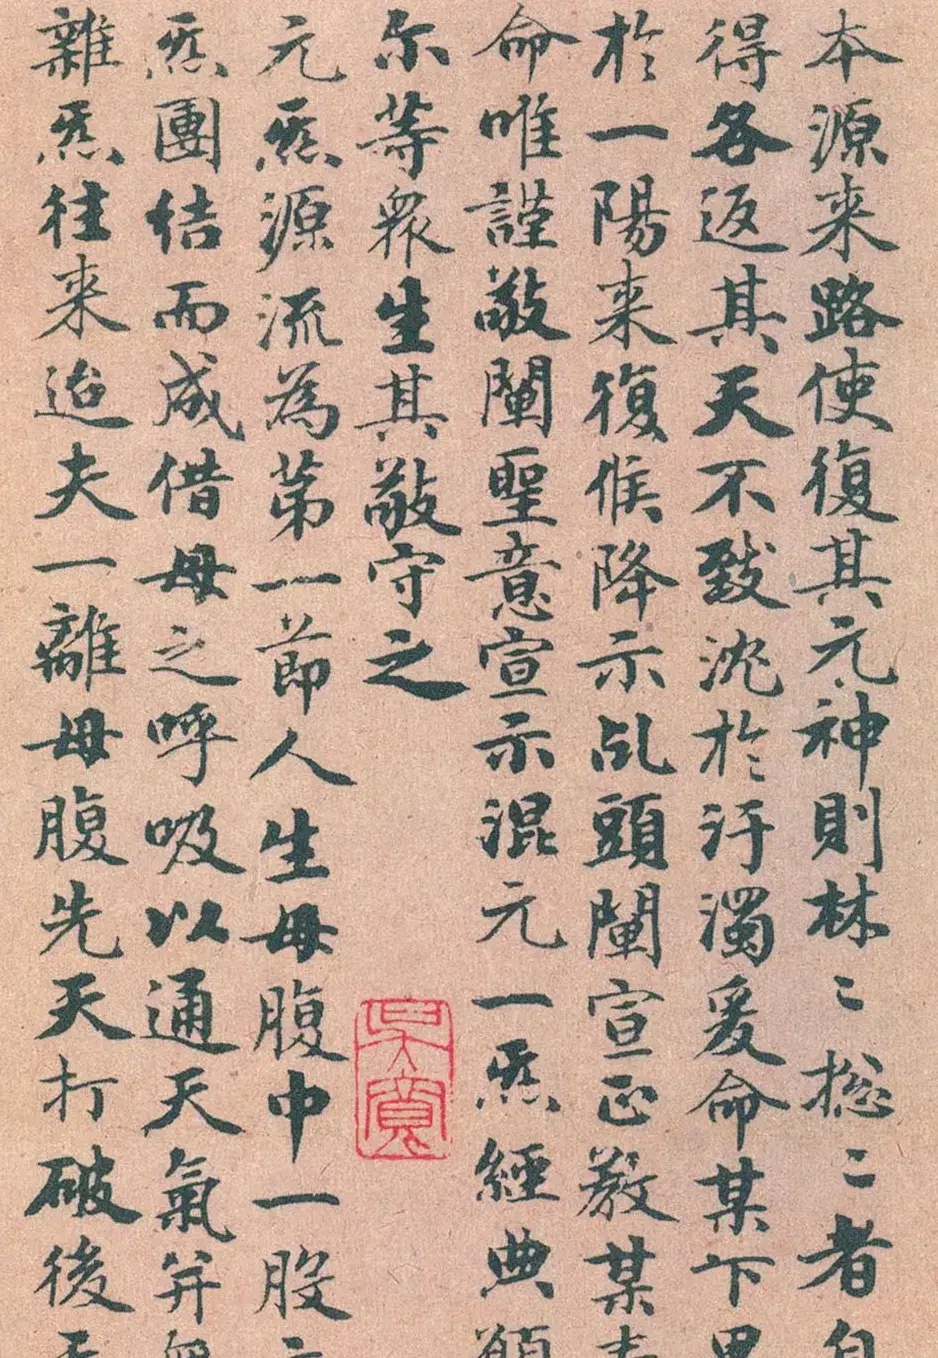 本源来路使復其元神則林〻總〻者自
得各返其天不致沈於汙濁爰命某下
於一陽来復候降示乩頭闡宣正教某
命唯謹敬闡聖意宣示混元一炁經典
尔等衆生其敬守之
元炁源流為第一節人生母腹中一股
炁團结而成借母之呼吸以通天氣并
雜炁往来迨夫一離母腹先天打破後
吳寬